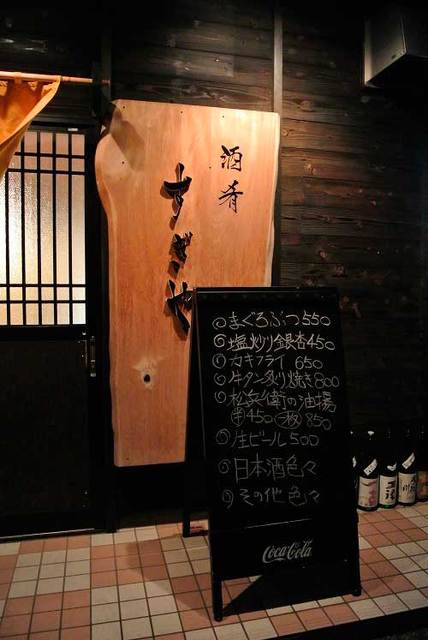 酒肴
すぎや
◎まぐろぶつ550
◎塩炒り銀杏450
◎カキフライ 650
◎牛タン炙り焼き800
◎松兵衛の油揚
半450 枚850
◎生ビール500
◎日本酒色々
◎その他色々
Coca-Cola